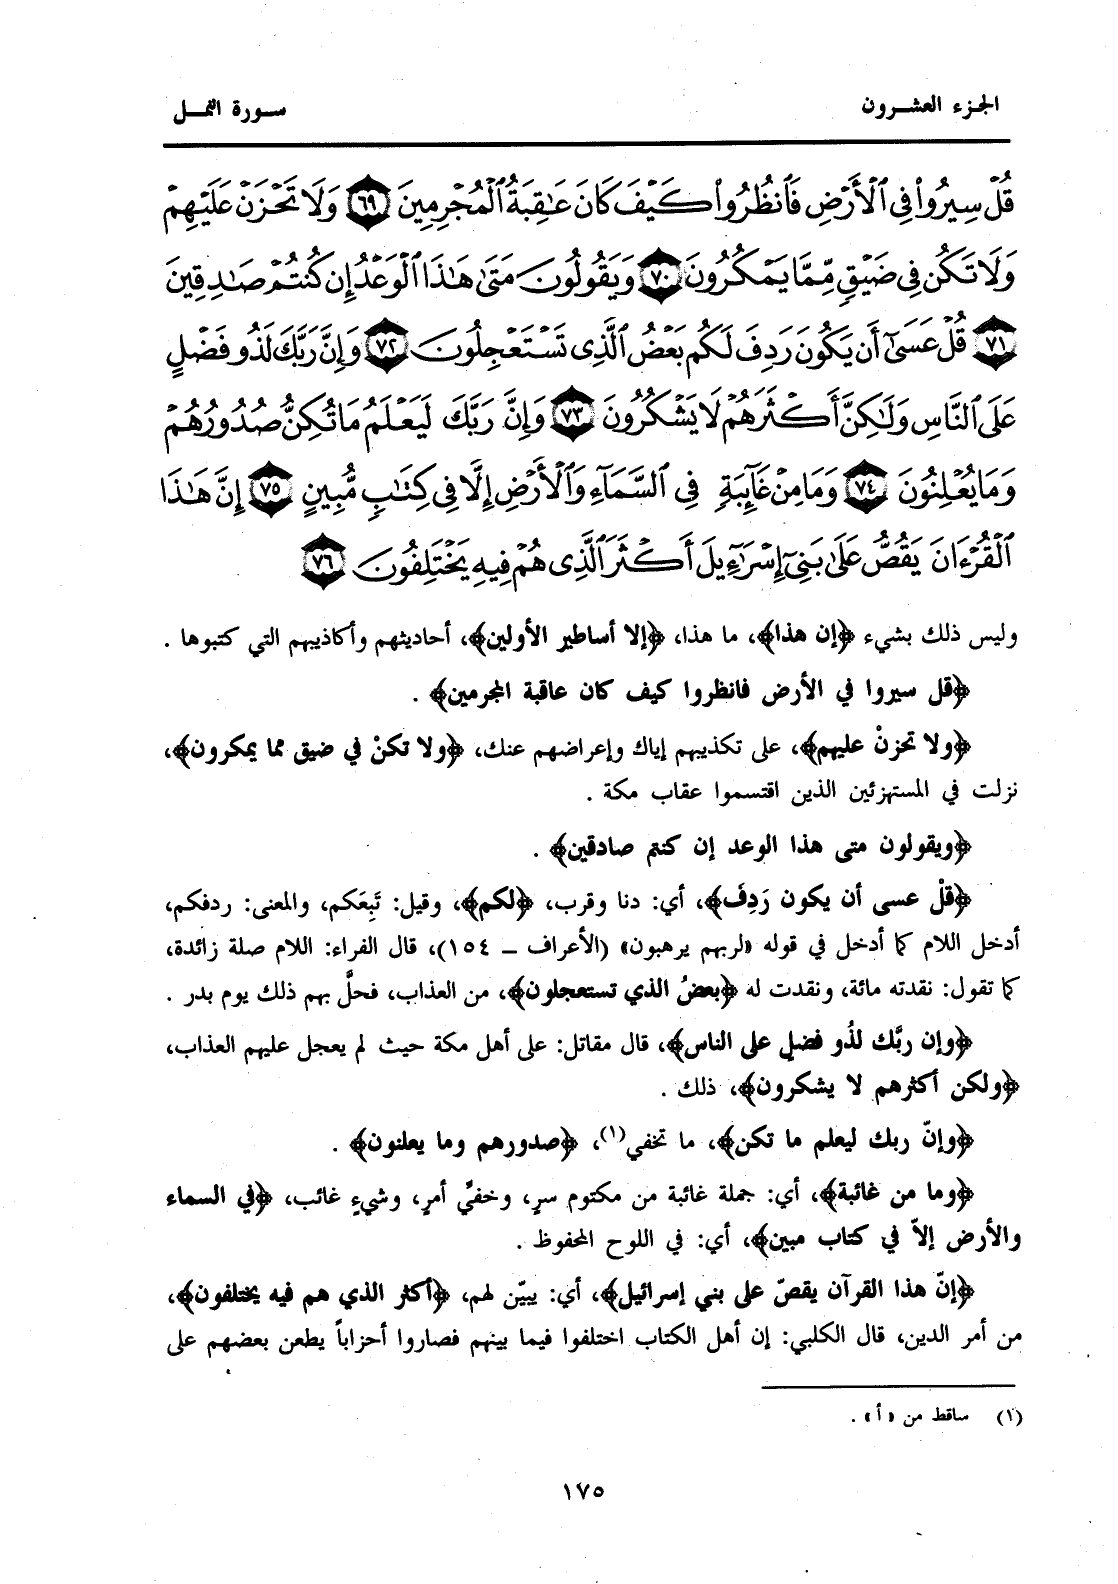 الجزء العشرون
سورة النمل
قُلْ سِيرُوا۟ فِى ٱلْأَرْضِ فَٱنظُرُوا۟ كَيْفَ كَانَ عَـٰقِبَةُ ٱلْمُجْرِمِينَ ٦٩ وَلَا تَحْزَنْ عَلَيْهِمْ
وَلَا تَكُن فِى ضَيْقٍ مِّمَّا يَمْكُرُونَ ٧٠ وَيَقُولُونَ مَتَىٰ هَـٰذَا ٱلْوَعْدُ إِن كُنتُمْ صَـٰدِقِينَ
٧١ قُلْ عَسَىٰٓ أَن يَكُونَ رَدِفَ لَكُم بَعْضُ ٱلَّذِى تَسْتَعْجِلُونَ ٧٢ وَإِنَّ رَبَّكَ لَذُو فَضْلٍ
عَلَى ٱلنَّاسِ وَلَـٰكِنَّ أَكْثَرَهُمْ لَا يَشْكُرُونَ ٧٣ وَإِنَّ رَبَّكَ لَيَعْلَمُ مَا تُكِنُّ صُدُورُهُمْ
وَمَا يُعْلِنُونَ ٧٤ وَمَا مِنْ غَآئِبَةٍ فِى ٱلسَّمَآءِ وَٱلْأَرْضِ إِلَّا فِى كِتَـٰبٍ مُّبِينٍ ٧٥ إِنَّ هَـٰذَا
ٱلْقُرْءَانَ يَقُصُّ عَلَىٰ بَنِىٓ إِسْرَٰٓءِيلَ أَكْثَرَ ٱلَّذِى هُمْ فِيهِ يَخْتَلِفُونَ ٧٦
وليس ذلك بشيء ﴿إن هذا﴾، ما هذا، ﴿إلا أساطير الأولين﴾، أحاديثهم وأكاذيبهم التي كتبوها .
﴿قل سيروا في الأرض فانظروا كيف كان عاقبة المجرمين﴾ .
﴿ولا تحزنْ عليهم﴾، على تكذيبهم إياك وإعراضهم عنك، ﴿ولا تكنْ في ضيق مما يمكرون﴾،
نزلت في المستهزئين الذين اقتسموا عقاب مكة .
﴿ويقولون متى هذا الوعد إن كنتم صادقين﴾ .
﴿قلْ عسى أن يكون رَدِفَ﴾، أي: دنا وقرب، ﴿لكم﴾، وقيل: تَبِعَكم، والمعنى: ردفكم،
أدخل اللام كما أدخل في قوله «لربهم يرهبون» (الأعراف ــ ١٥٤)، قال الفراء: اللام صلة زائدة،
كما تقول: نقدته مائة، ونقدت له ﴿بعضُ الذي تستعجلون﴾، من العذاب، فحلَّ بهم ذلك يوم بدر .
﴿وإن ربَّك لذُو فضلٍ على الناس﴾، قال مقاتل: على أهل مكة حيث لم يعجل عليهم العذاب،
﴿ولكن أكثرهم لا يشكرون﴾، ذلك .
﴿وإنّ ربك ليعلم ما تكن﴾، ما تخفي(١)، ﴿صدورهم وما يعلنون﴾ .
﴿وما من غائبة﴾، أي: جملة غائبة من مكتوم سرٍ، وخفيِّ أمرٍ، وشيءٍ غائب، ﴿في السماء
والأرض إلاّ في كتاب مبين﴾، أي: في اللوح المحفوظ .
﴿إنّ هذا القرآن يقصّ على بني إسرائيل﴾، أي: يبيّن لهم، ﴿أكثر الذي هم فيه يختلفون﴾،
من أمر الدين، قال الكلبي: إن أهل الكتاب اختلفوا فيما بينهم فصاروا أحزاباً يطعن بعضهم على
(١) ساقط من «أ» .
١٧٥